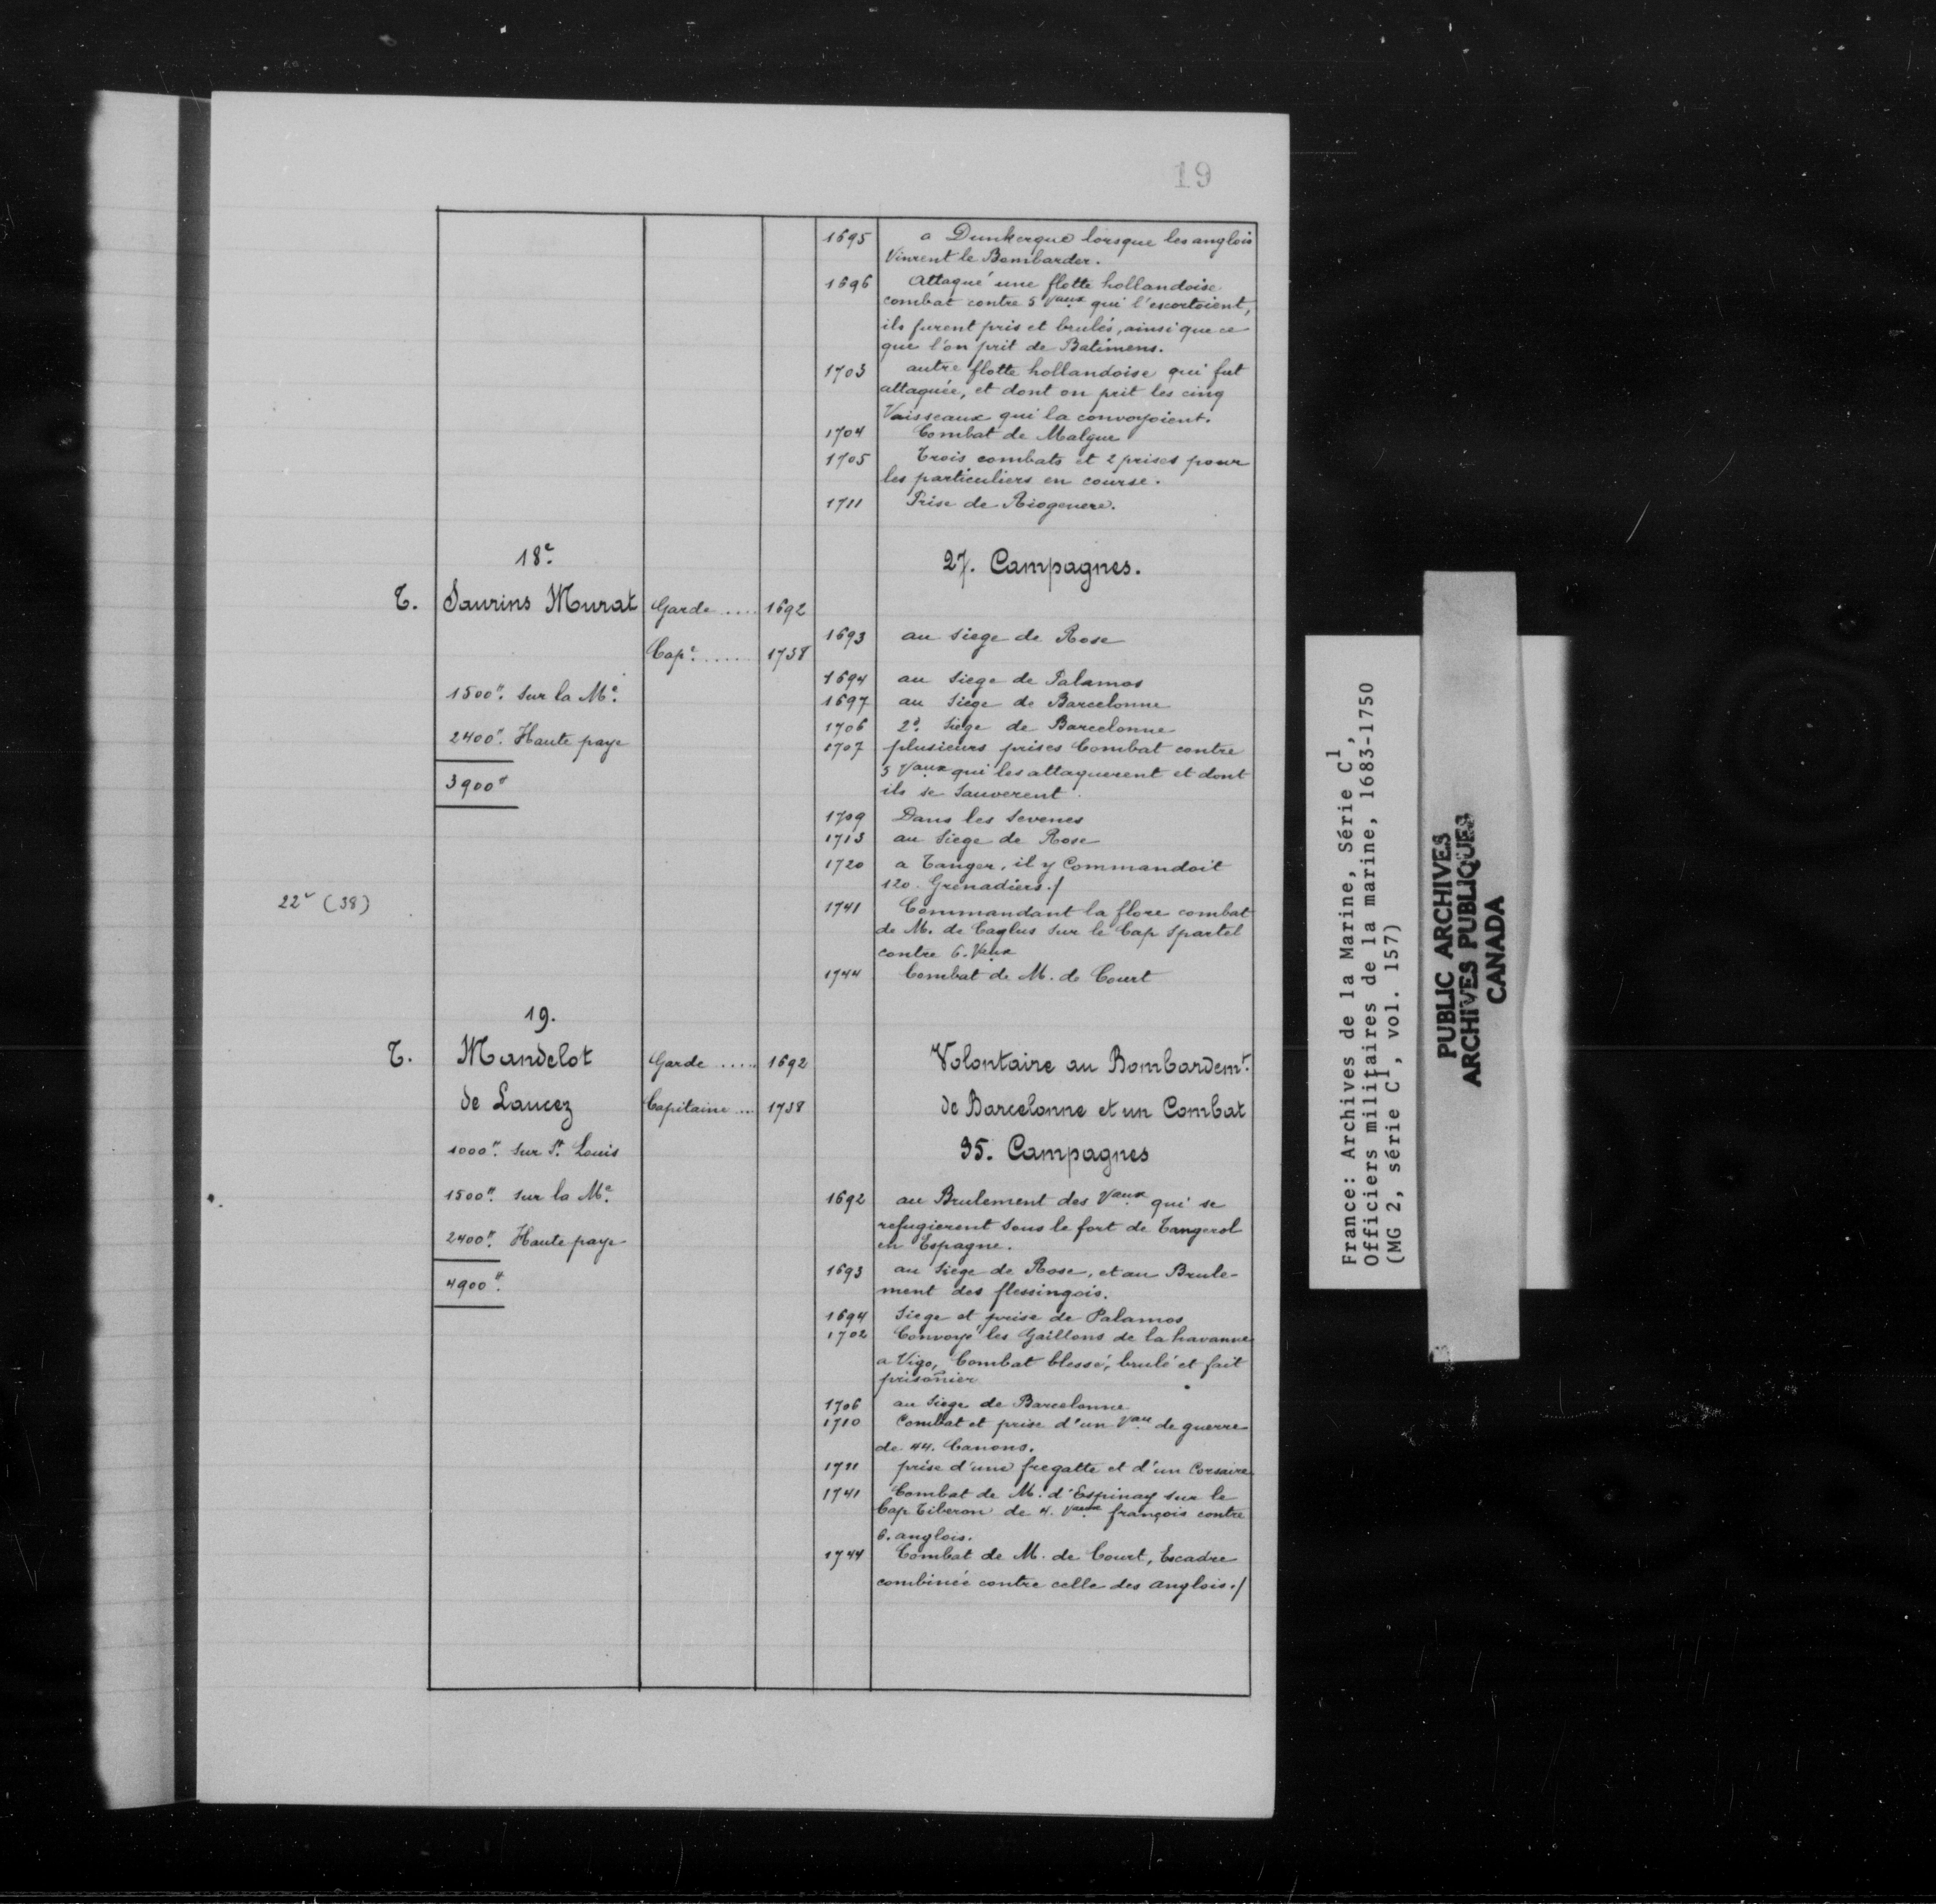 19
1695 a Dunkerque lorsque les anglois
Vinrent le Bombarder.
1696 Attaqué une flotte hollandoise
combat contre 5 Vaux qui l'escortoient,
ils furent pris et brulés, ainsi que ce
que l'on prit de Batimens.
1703 autre flotte hollandoise qui fut
attaquée, et dont on prit les cinq
Vaisseaux qui la convoyoient.
1704 Combat de Malgue
1705 Trois combats et 2 prises pour
les particuliers en course.
1711 Prise de Riogenere.
18e.
27. Campagnes.
T. Saurins Murat Garde .... 1692
1693 au siege de Rose
Cape. ..... 1738
1694 au siege de Palamos
1500tt. sur la Me.
1697 au Siege de Barcelonne
1706 2d. Siege de Barcelonne
2400tt. Haute paye
1707 plusieurs prises Combat contre
5 Vaux qui les attaquerent et dont
3900tt
ils se Sauverent.
1709 Dans les Sevenes
1713 au Siege de Rose
1720 a Tanger, il y Commandoit
120. Grenadiers./
22v (38)
1741 Commandant la flore combat
de M. de Caylus sur le Cap Spartel
contre 6. Vaux
1744 Combat de M. de Court
19.
T. Mandelot Garde ..... 1692 Volontaire au Bombardemt.
de Laucez Capitaine ... 1738 de Barcelonne et un Combat
1000tt. sur St. Louis
35. Campagnes
1500tt. sur la Me.
1692 au Brulement des Vaux qui se
refugierent sous le fort de Tangerol
2400tt. Haute paye
en Espagne.
1693 au Siege de Rose, et au Brule-
4900tt.
ment des flessingois.
1694 Siege et prise de Palamos
1702 Convoyé les Gaillons de la havanne
a Vigo, Combat blessé, brulé et fait
prisonier
1706 au Siege de Barcelonne
1710 Combat et prise d'un Vau de guerre
de 44. Canons.
1711 prise d'une fregatte et d'un Corsaire
1741 Combat de M. d'Espinay sur le
Cap Tiberon de 4. Vaux françois contre
6. anglois.
1744 Combat de M. de Court, Escadre
combinée contre celle des anglois./
France: Archives de la Marine, Série C1,
Officiers militaires de la marine, 1683-1750
(MG 2, série C1, vol. 157)
PUBLIC ARCHIVES
ARCHIVES PUBLIQUES
CANADA